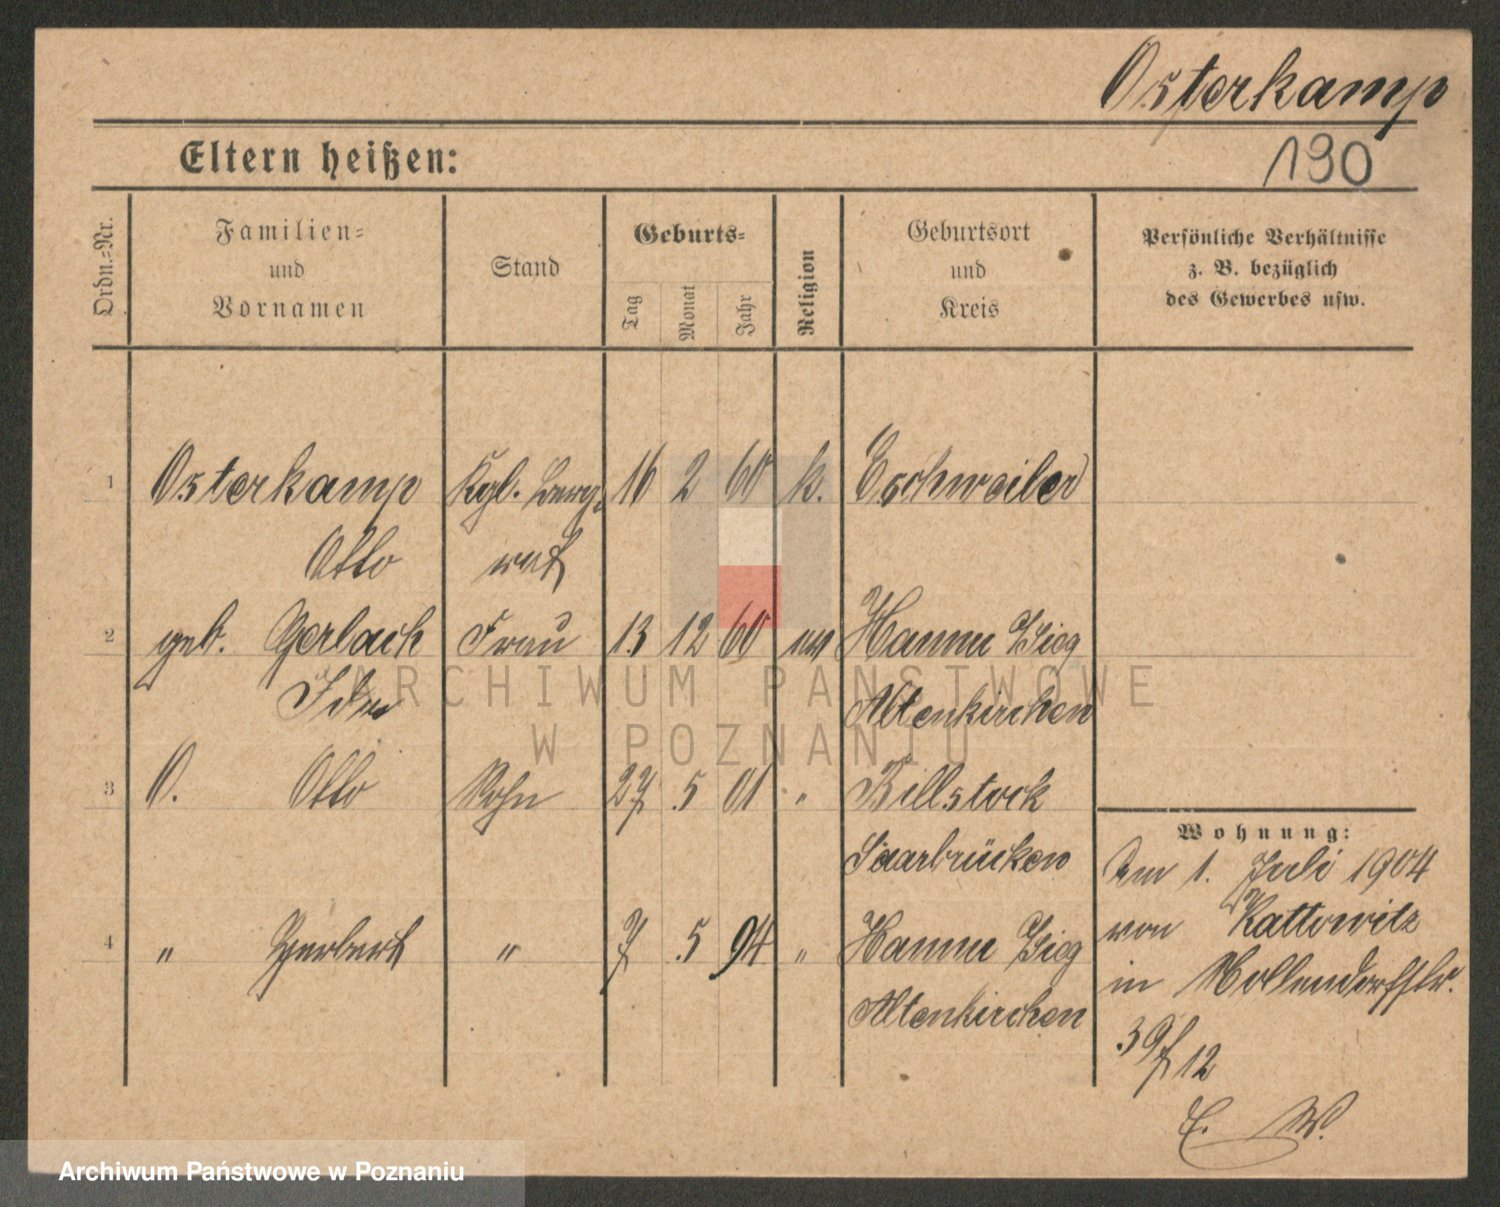 Osterkamp
190
Eltern heißen:
Ordn.=Nr.
Familien=
und
Vornamen
Stand
Geburts=
Tag
Monat
Jahr
Religion
Geburtsort
und
Kreis
Persönliche Verhältnisse
z. B. bezüglich
des Gewerbes usw.
1 Osterkamp Kgl. Berg- 16 2 60 k. Eschweiler
Otto rat
2 geb. Gerlach Frau 13 12 60 ev Hamm Sieg
Ida Altenkirchen
3 O. Otto Sohn 27 5 01 " Billstock
Saarbrücken
4 " Herbert " 7 5 94 " Hamm Sieg
Altenkirchen
Wohnung:
Am 1. Juli 1904
von Kattowitz
in Mollendorfstr.
12
E. W.
ARCHIWUM PAŃSTWOWE
W POZNANIU
Archiwum Państwowe w Poznaniu